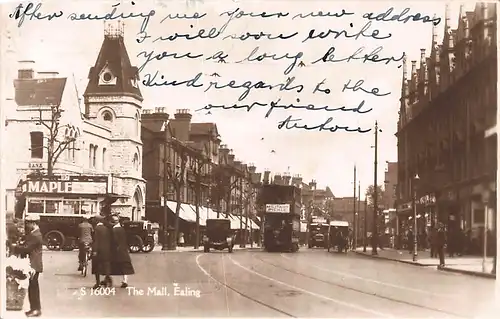 After sending me your new address
I will soon write
you a long letter
Kind regards to the
our friend
Anton
BANK
MAPLE
S 16004 The Mall, Ealing